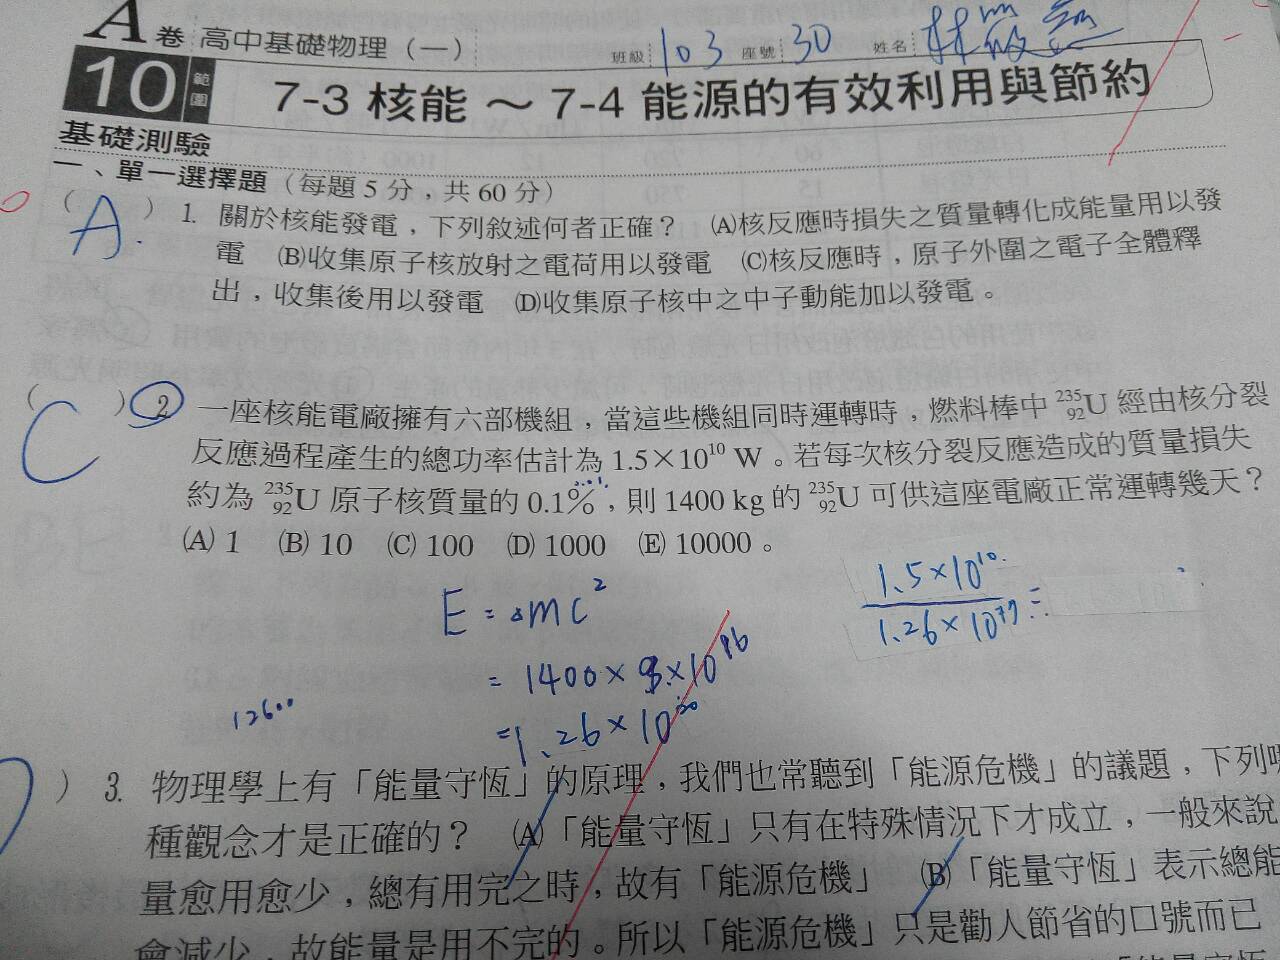 A卷 高中基礎物理（一） 班級 103 座號 30 姓名 林
10 範圍 7-3 核能 ～ 7-4 能源的有效利用與節約
基礎測驗
一、單一選擇題（每題 5 分，共 60 分）
( A. ) 1. 關於核能發電，下列敘述何者正確？ (A)核反應時損失之質量轉化成能量用以發
電 (B)收集原子核放射之電荷用以發電 (C)核反應時，原子外圍之電子全體釋
出，收集後用以發電 (D)收集原子核中之中子動能加以發電。
( C ) 2. 一座核能電廠擁有六部機組，當這些機組同時運轉時，燃料棒中 ²³⁵₉₂U 經由核分裂
反應過程產生的總功率估計為 1.5×10¹⁰ W。若每次核分裂反應造成的質量損失
約為 ²³⁵₉₂U 原子核質量的 0.1%，則 1400 kg 的 ²³⁵₉₂U 可供這座電廠正常運轉幾天？
(A) 1 (B) 10 (C) 100 (D) 1000 (E) 10000。
E = Δmc²
1.5×10¹⁰
1.26×10 =
= 1400×9×10
12600
=1.26×10²⁰
) 3. 物理學上有「能量守恆」的原理，我們也常聽到「能源危機」的議題，下列哪
種觀念才是正確的？ (A)「能量守恆」只有在特殊情況下才成立，一般來說
量愈用愈少，總有用完之時，故有「能源危機」 (B)「能量守恆」表示總能
會減少，故能量是用不完的。所以「能源危機」只是勸人節省的口號而已
「能量守恆